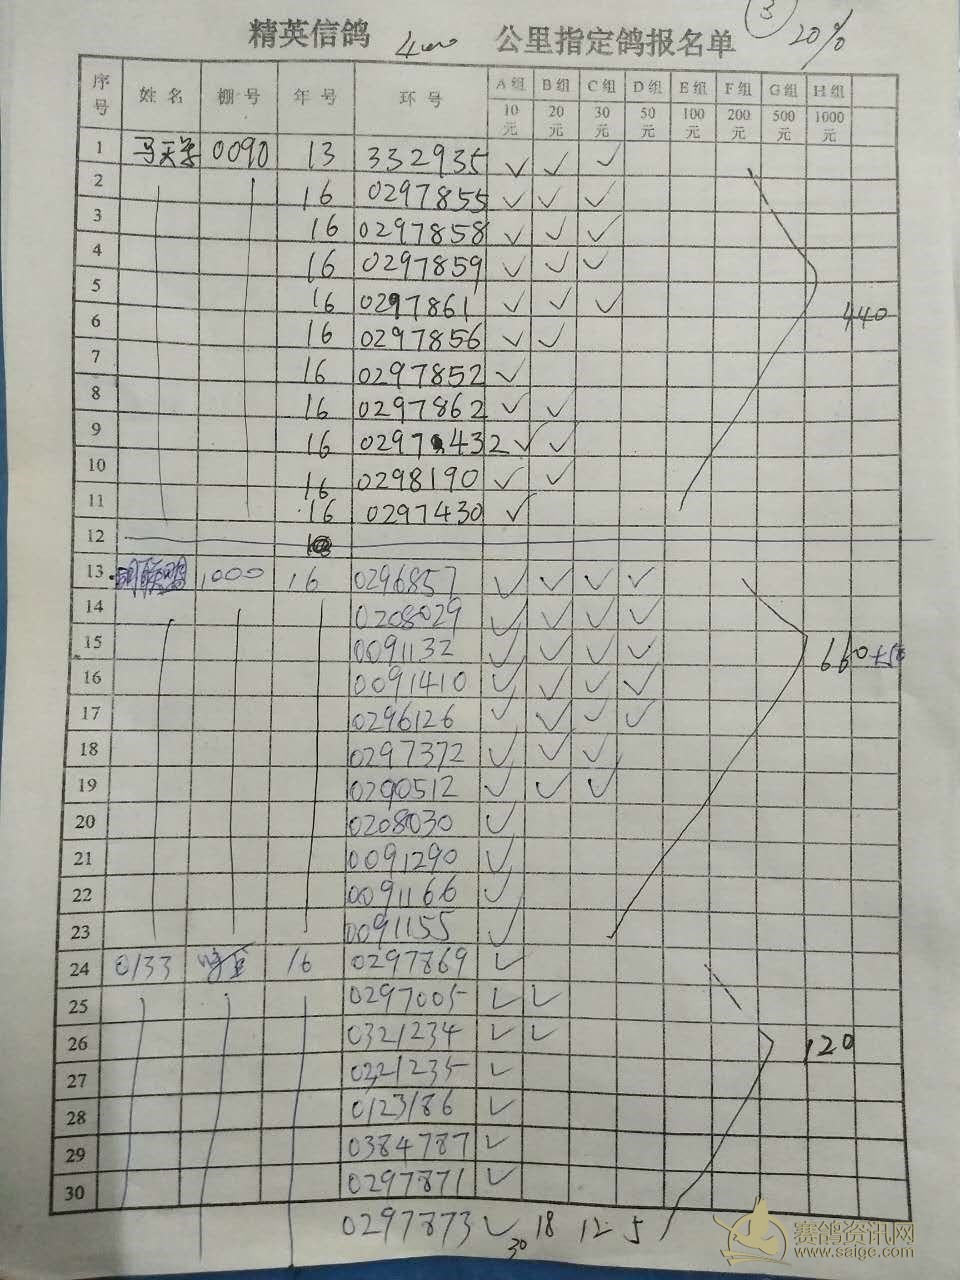 ③ 20%
精英信鸽 400 公里指定鸽报名单
序号 姓名 棚号 年号 环号 A组 B组 C组 D组 E组 F组 G组 H组
10元 20元 30元 50元 100元 200元 500元 1000元
1 0090 13 332935 ✓ ✓ ✓
2 16 0297855 ✓ ✓ ✓
3 16 0297858 ✓ ✓ ✓
4 16 0297859 ✓ ✓ ✓
5 16 0297861 ✓ ✓ ✓ 440
6 16 0297856 ✓ ✓
7 16 0297852 ✓
8 16 0297862 ✓ ✓
9 16 0297432 ✓ ✓
10 16 0298190 ✓ ✓
11 16 0297430 ✓
12
13 1000 16 0296857 ✓ ✓ ✓ ✓
14 0208029 ✓ ✓ ✓ ✓
15 0091132 ✓ ✓ ✓ ✓ 660
16 0091410 ✓ ✓ ✓ ✓
17 0296126 ✓ ✓ ✓ ✓
18 0297372 ✓ ✓ ✓
19 0290512 ✓ ✓ ✓
20 0208030 ✓
21 0091290 ✓
22 0091166 ✓
23 0091155 ✓
24 0133 16 0297869 ✓
25 0297005 ✓ ✓
26 0321234 ✓ ✓ 120
27 0221235 ✓
28 0123186 ✓
29 0384787 ✓
30 0297871 ✓
0297873 ✓ 30 18 12 5
赛鸽资讯网
www.saige.com